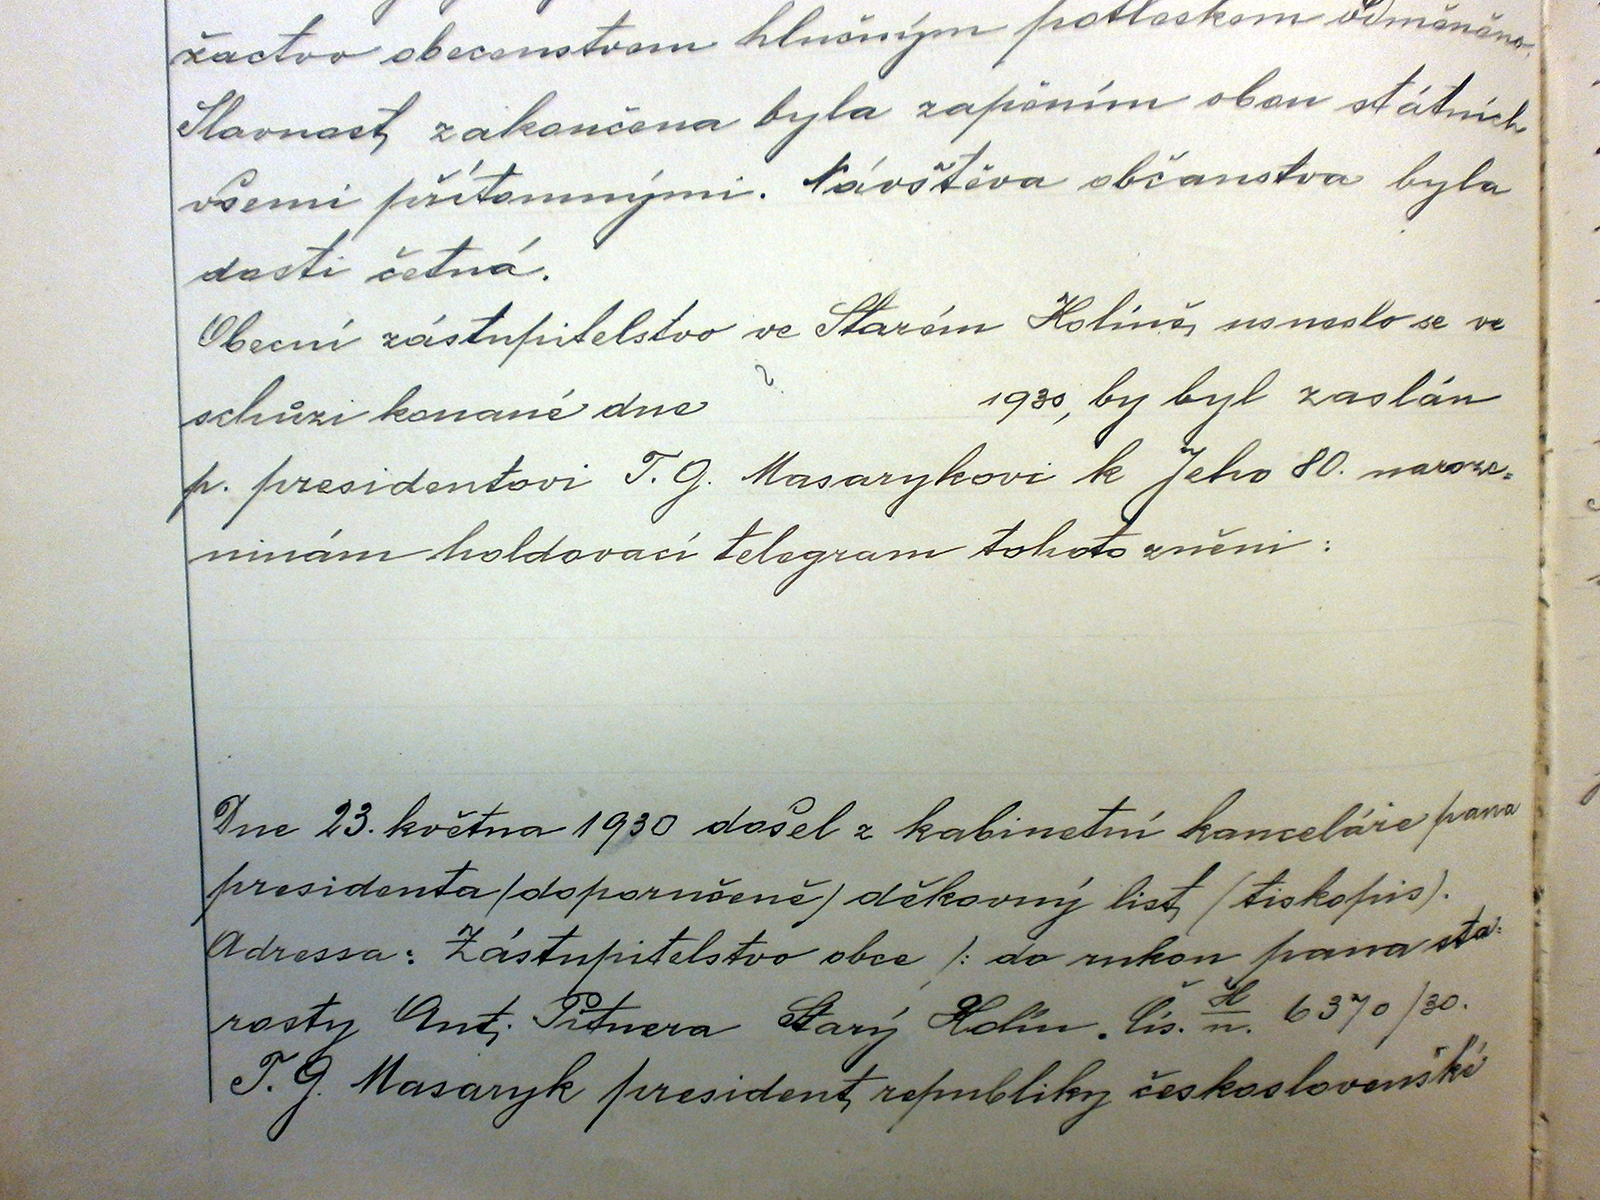 žactvo obecenstvem hlučným potleskem odměněno.
Slavnost zakončena byla zapěním obou státních
všemi přítomnými. Návštěva občanstva byla
dosti četná.
Obecní zástupitelstvo ve Starém Holíně usneslo se ve
schůzi konané dne 1930, by byl zaslán
p. presidentovi T. G. Masarykovi k Jeho 80. naroze=
ninám holdovací telegram tohoto znění :
Dne 23. května 1930 došel z kabinetní kanceláře pana
presidenta /doporučeně/ děkovný list (tiskopis).
Adressa: Zástupitelstvo obce /: do rukou pana sta-
rosty Ant. Pitnera Starý Holín. Čís. n. 6370/30.
T. G. Masaryk president republiky československé